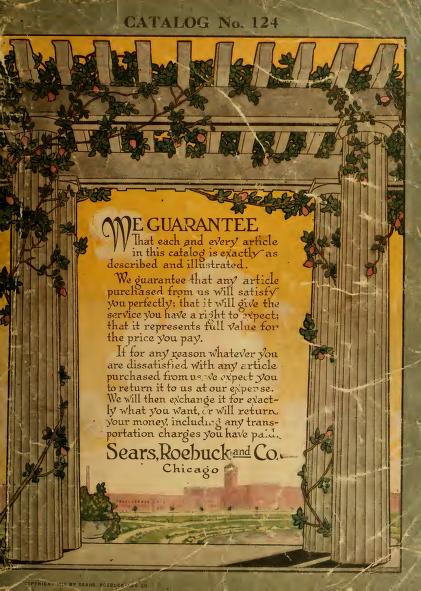 CATALOG No. 124
WE GUARANTEE
That each and every article
in this catalog is exactly as
described and illustrated.
We guarantee that any article
purchased from us will satisfy
you perfectly; that it will give the
service you have a right to expect;
that it represents full value for
the price you pay.
If for any reason whatever you
are dissatisfied with any article
purchased from us, we expect you
to return it to us at our expense.
We will then exchange it for exact-
ly what you want, or will return
your money, including any trans-
portation charges you have paid.
Sears, Roebuck and Co.
Chicago
COPYRIGHT BY SEARS, ROEBUCK AND CO.